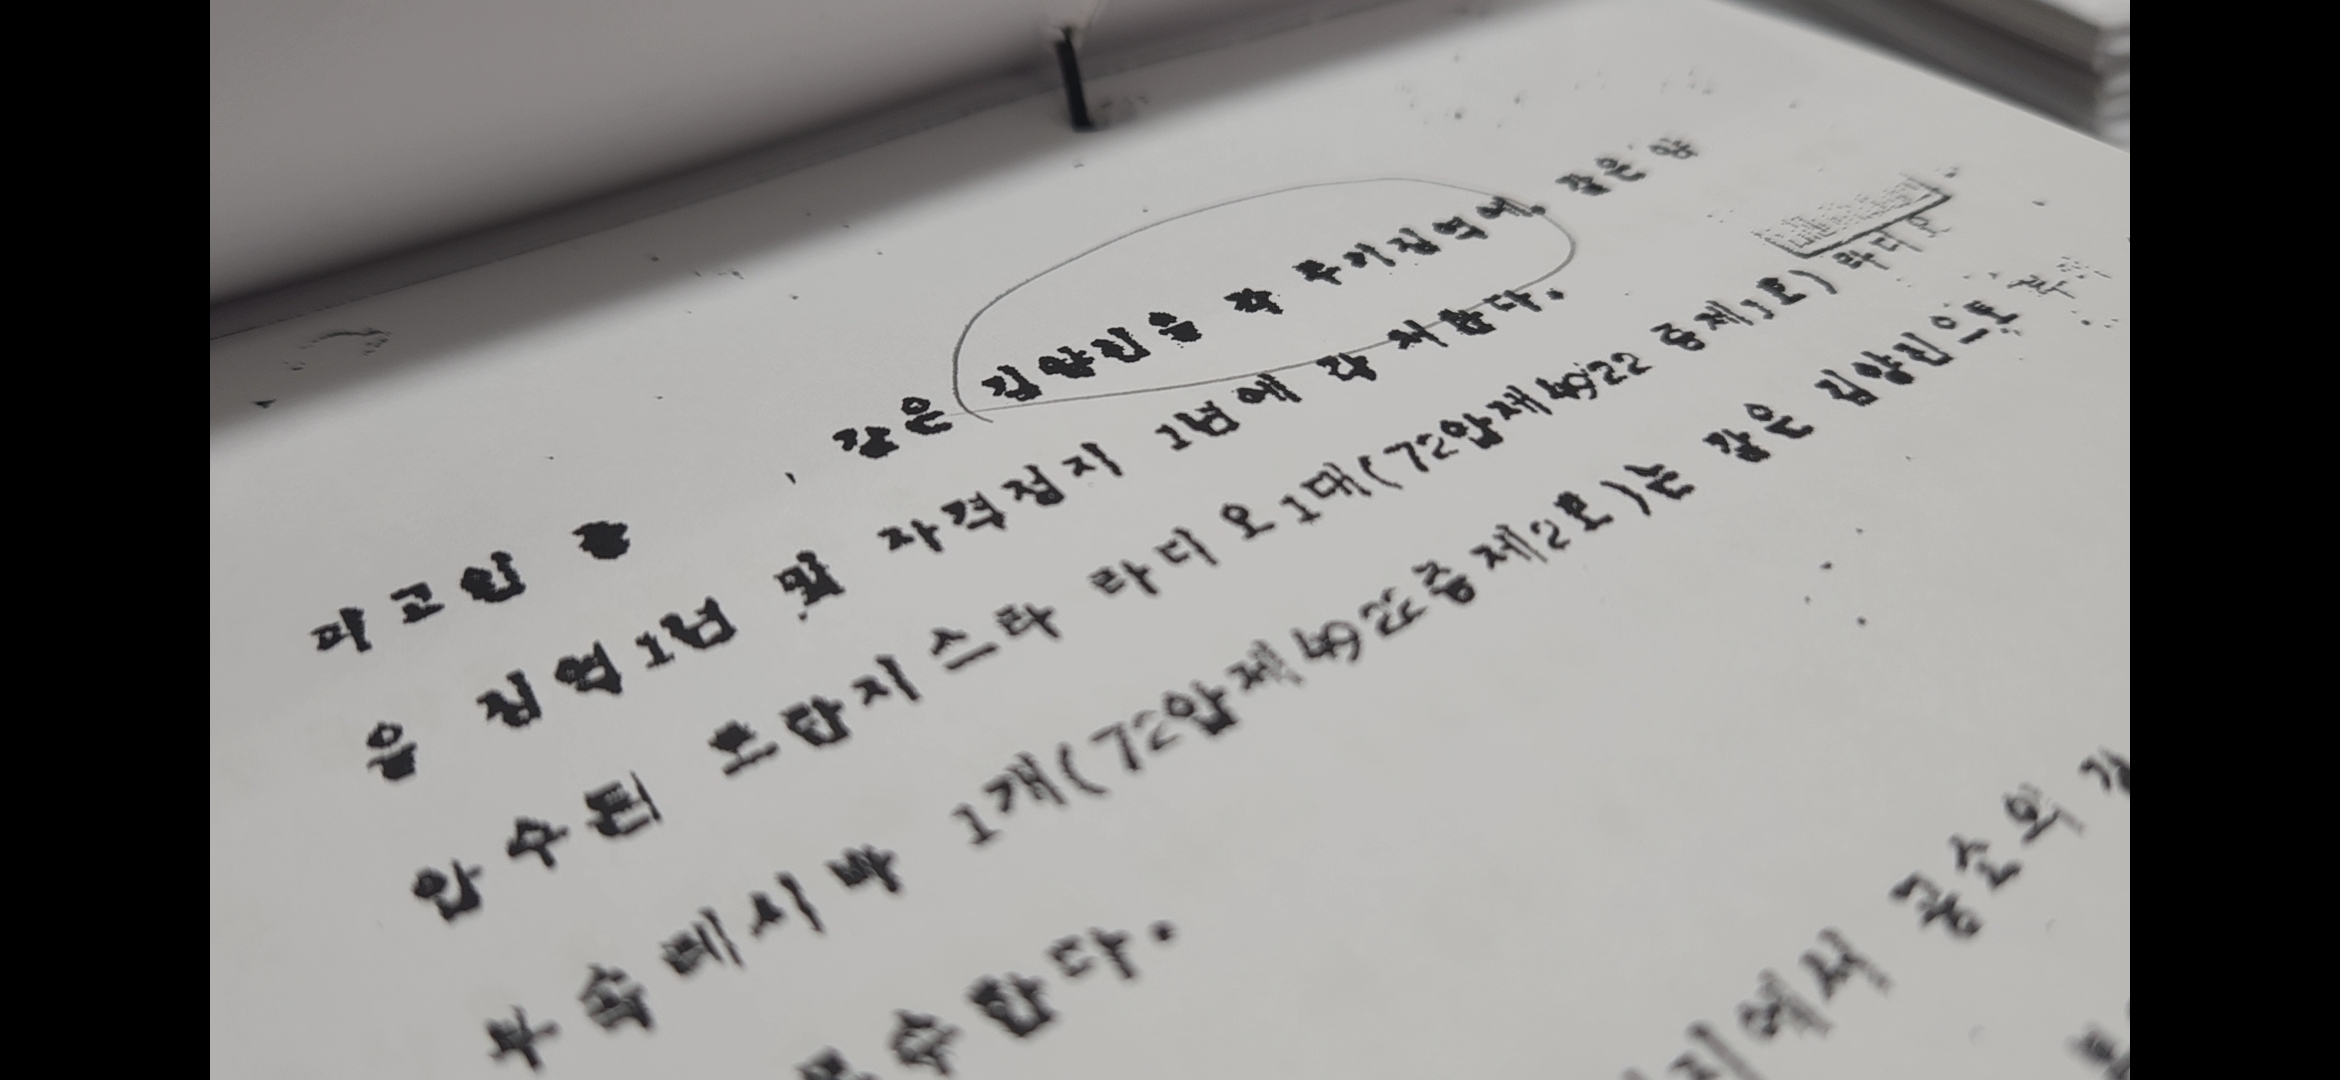 피고인 중 , 같은 김양진을 각 무기징역에, 같은
을 징역1년 및 자격정지 1년에 각 처한다.
압수된 트란지스타 라디오1대(72압제4922 증제1호) 라디오
부속 테시바 1개(72압제4922증제2호)는 같은 김양진으로 부
몰수한다.
에서 공소외